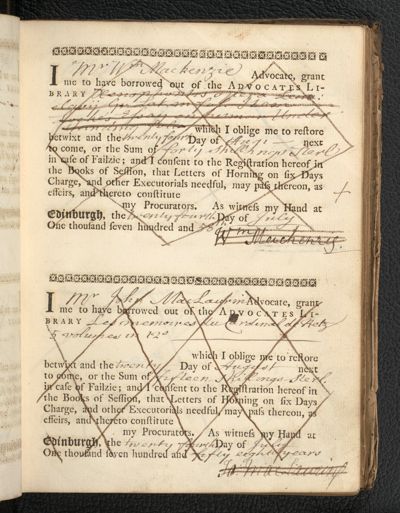 I Mr Wm Mackenzie Advocate, grant
me to have borrowed out of the ADVOCATES LI-
BRARY
which I oblige me to reſtore
betwixt and the twenty fourth Day of Augt. next
to come, or the Sum of Forty Shillings Sterl.
in caſe of Failzie; and I conſent to the Regiſtration hereof in
the Books of Seſſion, that Letters of Horning on ſix Days
Charge, and other Executorials needful, may paſs thereon, as
effeirs, and thereto conſtitute
my Procurators. As witneſs my Hand at
Edinburgh, the twenty fourth Day of July
One thouſand ſeven hundred and 58
Wm Mackenzie.
I Mr John MacLaurin Advocate, grant
me to have borrowed out of the ADVOCATES LI-
BRARY Les memoires du Cardinal de Retz
5 volumes in 12o
which I oblige me to reſtore
betwixt and the twenty Day of August next
to come, or the Sum of fifteen Shillings Sterl.
in caſe of Failzie; and I conſent to the Regiſtration hereof in
the Books of Seſſion, that Letters of Horning on ſix Days
Charge, and other Executorials needful, may paſs thereon, as
effeirs, and thereto conſtitute
my Procurators. As witneſs my Hand at
Edinburgh, the twenty fourth Day of July
One thouſand ſeven hundred and fifty eight years
Jo: MacLaurin